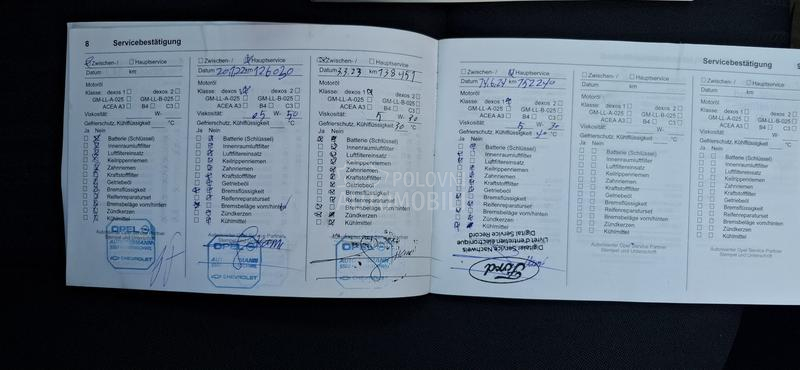 8 Servicebestätigung
Zwischen-/ Hauptservice
Datum km
Motoröl
Klasse: dexos 1 dexos 2
GM-LL-A-025 GM-LL-B-025
ACEA A3 B4 C3
Viskosität: W-
Gefrierschutz, Kühlflüssigkeit °C
Ja Nein
Batterie (Schlüssel)
Innenraumluftfilter
Luftfiltereinsatz
Keilrippenriemen
Zahnriemen
Kraftstofffilter
Getriebeöl
Bremsflüssigkeit
Reifenreparaturset
Bremsbeläge vorn/hinten
Zündkerzen
Kühlmittel
OPEL
CHEVROLET
Zwischen-/ Hauptservice
Datum km 126030
Motoröl
Klasse: dexos 1 dexos 2
GM-LL-A-025 GM-LL-B-025
ACEA A3 B4 C3
Viskosität: 5 W- 50
Gefrierschutz, Kühlflüssigkeit °C
Ja Nein
Batterie (Schlüssel)
Innenraumluftfilter
Luftfiltereinsatz
Keilrippenriemen
Zahnriemen
Kraftstofffilter
Getriebeöl
Bremsflüssigkeit
Reifenreparaturset
Bremsbeläge vorn/hinten
Zündkerzen
Kühlmittel
OPEL
CHEVROLET
Zwischen-/ Hauptservice
Datum 3.3.23 km 138451
Motoröl
Klasse: dexos 1 dexos 2
GM-LL-A-025 GM-LL-B-025
ACEA A3 B4 C3
Viskosität: 5 W- 30
Gefrierschutz, Kühlflüssigkeit 30 °C
Ja Nein
Batterie (Schlüssel)
Innenraumluftfilter
Luftfiltereinsatz
Keilrippenriemen
Zahnriemen
Kraftstofffilter
Getriebeöl
Bremsflüssigkeit
Reifenreparaturset
Bremsbeläge vorn/hinten
Zündkerzen
Kühlmittel
OPEL
CHEVROLET
Zwischen-/ Hauptservice
Datum 14.6.24 km 152240
Motoröl
Klasse: dexos 1 dexos 2
GM-LL-A-025 GM-LL-B-025
ACEA A3 B4 C3
Viskosität: 5 W- 30
Gefrierschutz, Kühlflüssigkeit °C
Ja Nein
Batterie (Schlüssel)
Innenraumluftfilter
Luftfiltereinsatz
Keilrippenriemen
Zahnriemen
Kraftstofffilter
Getriebeöl
Bremsflüssigkeit
Reifenreparaturset
Bremsbeläge vorn/hinten
Zündkerzen
Kühlmittel
Digital Service Record
Livret d'entretien électronique
Digitaler Service Nachweis
Ford
Servicebestätigung 9
Zwischen-/ Hauptservice
Datum km
Motoröl
Klasse: dexos 1 dexos 2
GM-LL-A-025 GM-LL-B-025
ACEA A3 B4 C3
Viskosität: W-
Gefrierschutz, Kühlflüssigkeit °C
Ja Nein
Batterie (Schlüssel)
Innenraumluftfilter
Luftfiltereinsatz
Keilrippenriemen
Zahnriemen
Kraftstofffilter
Getriebeöl
Bremsflüssigkeit
Reifenreparaturset
Bremsbeläge vorn/hinten
Zündkerzen
Kühlmittel
Autorisierter Opel Service Partner
Stempel und Unterschrift
Zwischen-/ Hauptservice
Datum km
Motoröl
Klasse: dexos 1 dexos 2
GM-LL-A-025 GM-LL-B-025
ACEA A3 B4 C3
Viskosität: W-
Gefrierschutz, Kühlflüssigkeit °C
Ja Nein
Batterie (Schlüssel)
Innenraumluftfilter
Luftfiltereinsatz
Keilrippenriemen
Zahnriemen
Kraftstofffilter
Getriebeöl
Bremsflüssigkeit
Reifenreparaturset
Bremsbeläge vorn/hinten
Zündkerzen
Kühlmittel
Autorisierter Opel Service Partner
Stempel und Unterschrift